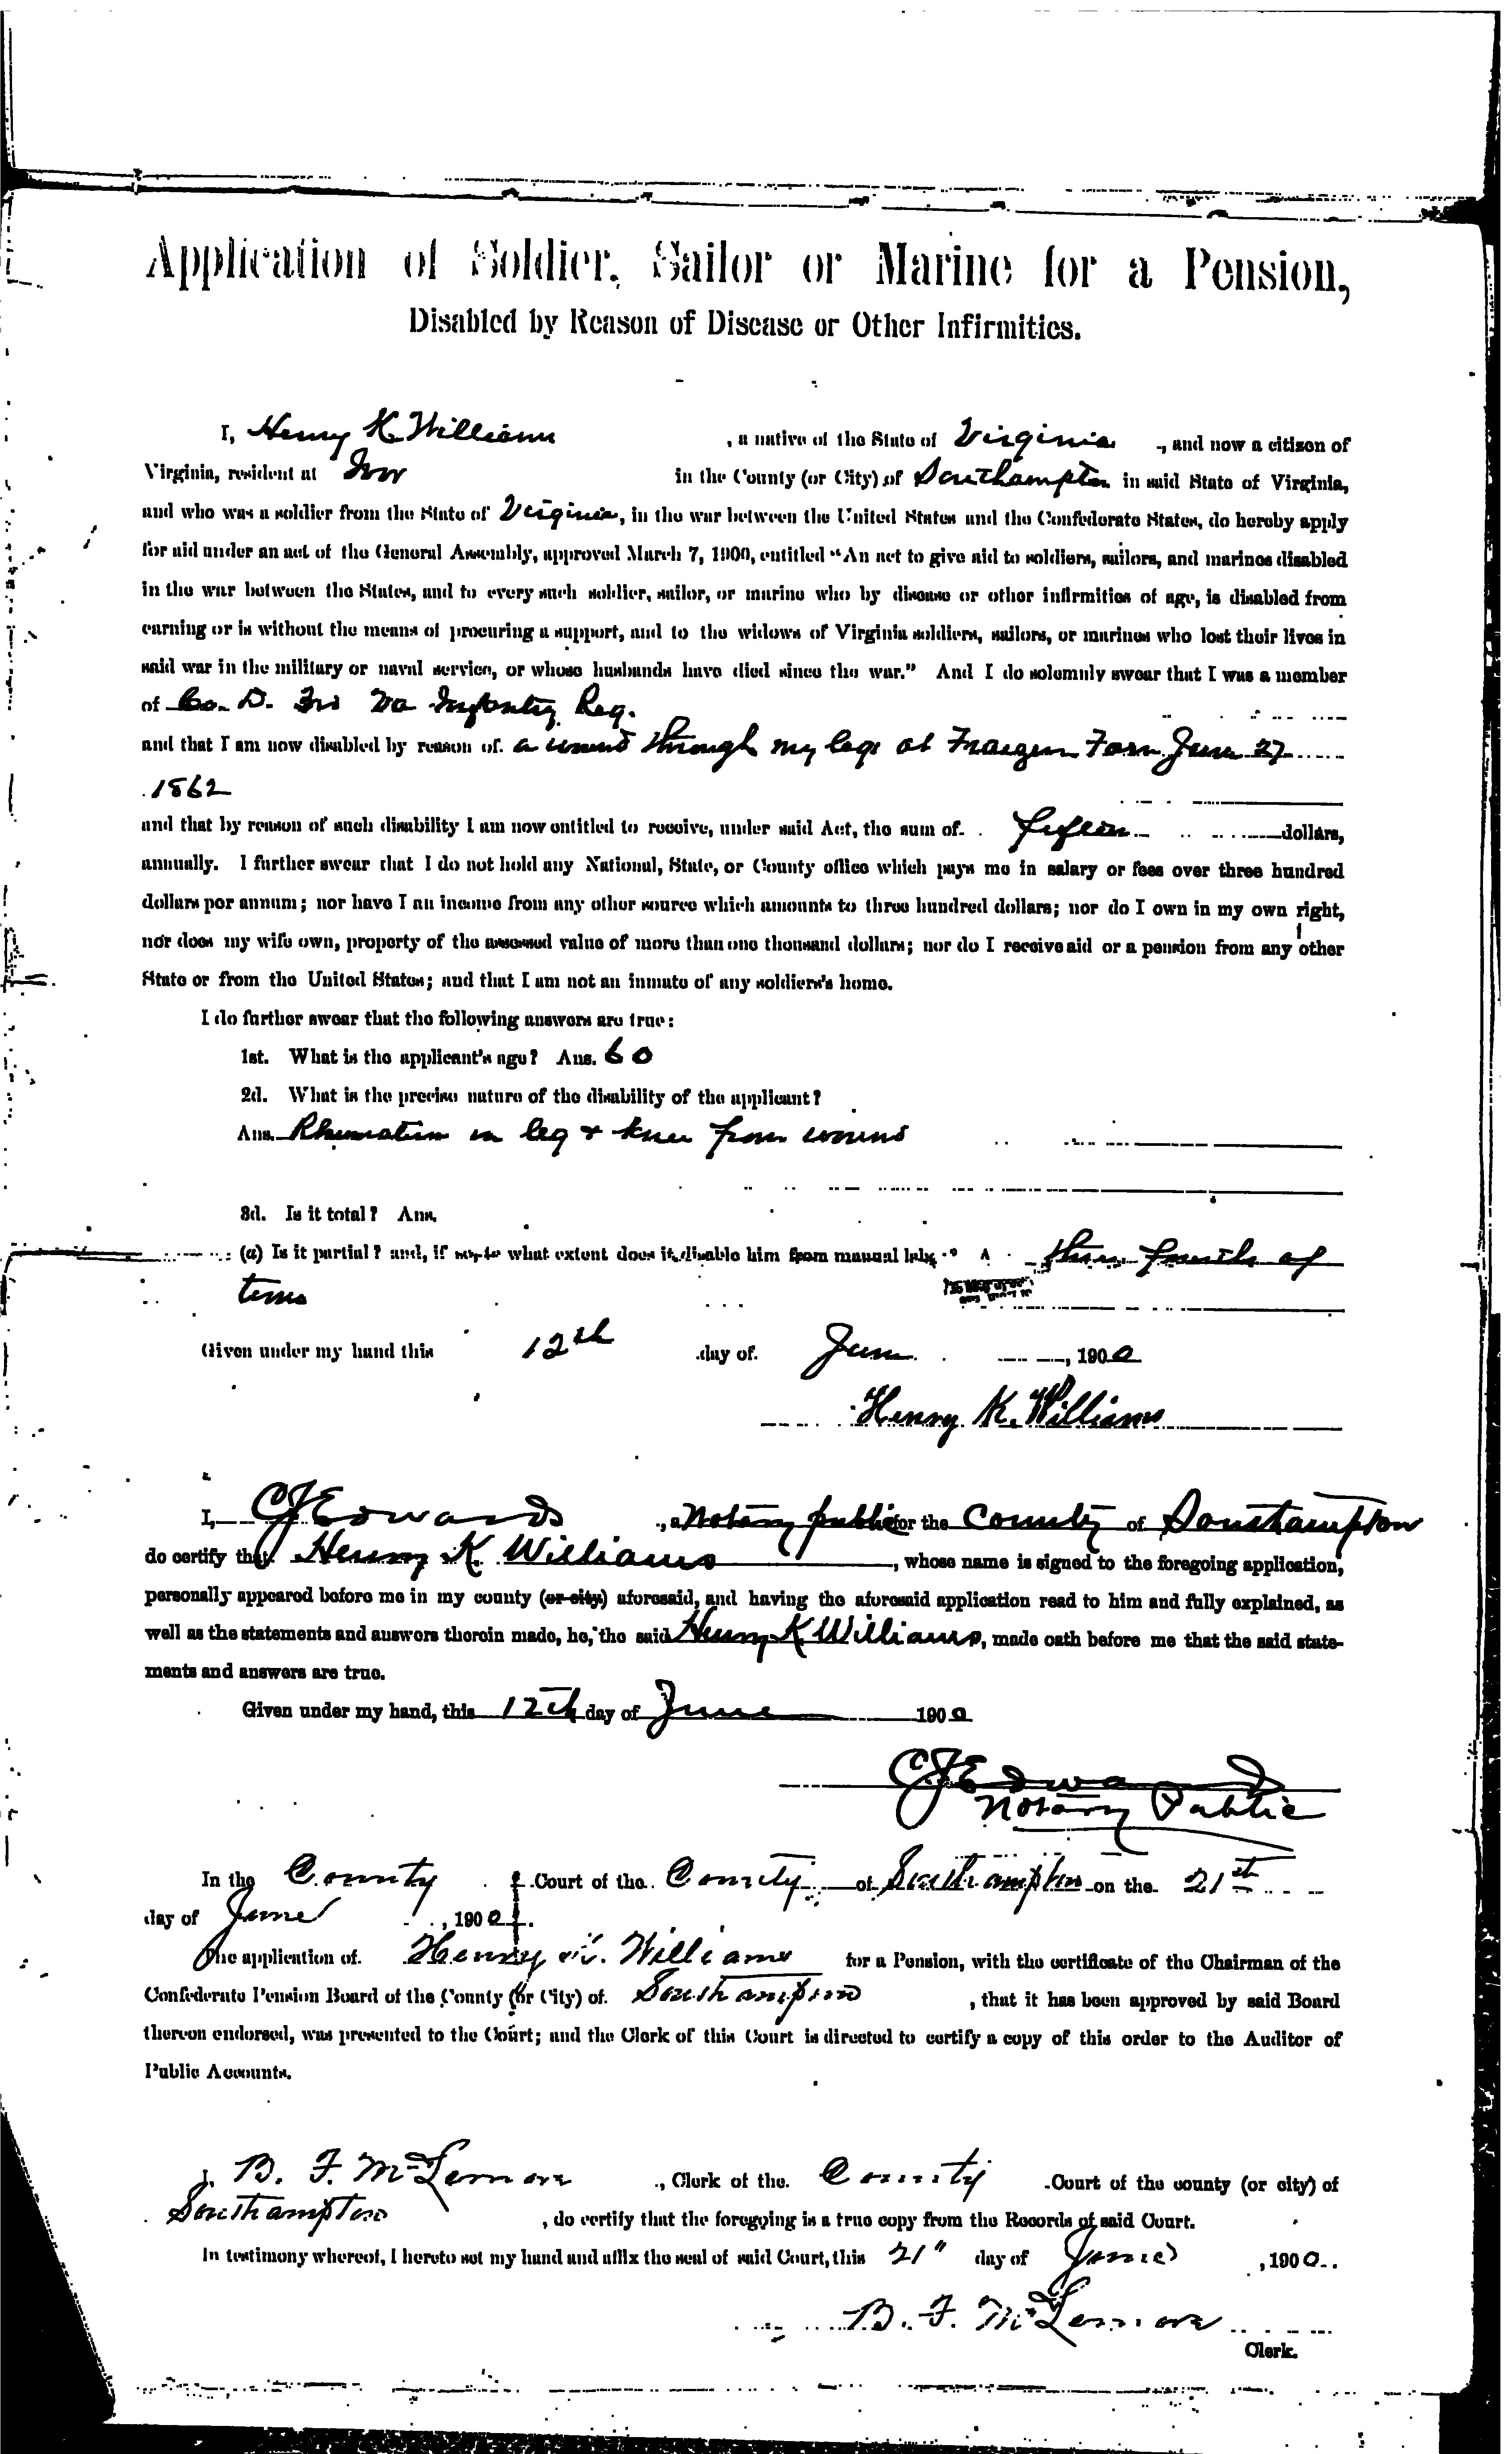 Application of Soldier, Sailor or Marine for a Pension,
Disabled by Reason of Disease or Other Infirmities.
I, Henry K. Williams, a native of the State of Virginia, and now a citizen of
Virginia, resident at Ivor in the County (or City) of Southampton in said State of Virginia,
and who was a soldier from the State of Virginia, in the war between the United States and the Confederate States, do hereby apply
for aid under an act of the General Assembly, approved March 7, 1900, entitled “An act to give aid to soldiers, sailors, and marines disabled
in the war between the States, and to every such soldier, sailor, or marine who by disease or other infirmities of age, is disabled from
earning or is without the means of procuring a support, and to the widows of Virginia soldiers, sailors, or marines who lost their lives in
said war in the military or naval service, or whose husbands have died since the war.” And I do solemnly swear that I was a member
of Co. D. 3rd Va Infantry Reg.
and that I am now disabled by reason of a wound through my legs at Farm June 27
1862
and that by reason of such disability I am now entitled to receive, under said Act, the sum of fifteen dollars,
annually. I further swear that I do not hold any National, State, or County office which pays me in salary or fees over three hundred
dollars per annum; nor have I an income from any other source which amounts to three hundred dollars; nor do I own in my own right,
nor does my wife own, property of the assessed value of more than one thousand dollars; nor do I receive aid or a pension from any other
State or from the United States; and that I am not an inmate of any soldiers's home.
I do further swear that the following answers are true:
1st. What is the applicant's age? Ans. 60
2d. What is the precise nature of the disability of the applicant?
Ans. Rheumatism in leg & knee from wound
3d. Is it total? Ans.
(a) Is it partial? and, if so, to what extent does it disable him from manual labor? A three fourths of
time
Given under my hand this 12th day of June, 1900
Henry K. Williams
I, C J Edwards, a Notary public for the County of Southampton
do certify that Henry K. Williams, whose name is signed to the foregoing application,
personally appeared before me in my county (or city) aforesaid, and having the aforesaid application read to him and fully explained, as
well as the statements and answers therein made, he, the said Henry K Williams, made oath before me that the said state-
ments and answers are true.
Given under my hand, this 12th day of June 1900
C J Edwards
Notary Public
In the County Court of the County of Southampton on the 21st
day of June, 1900.
The application of Henry K. Williams for a Pension, with the certificate of the Chairman of the
Confederate Pension Board of the County (or City) of Southampton, that it has been approved by said Board
thereon endorsed, was presented to the Court; and the Clerk of this Court is directed to certify a copy of this order to the Auditor of
Public Accounts.
I, B. F. McLemore, Clerk of the County Court of the county (or city) of
Southampton, do certify that the foregoing is a true copy from the Records of said Court.
In testimony whereof, I hereto set my hand and affix the seal of said Court, this 21" day of June, 1900.
B. F. McLemore
Clerk.